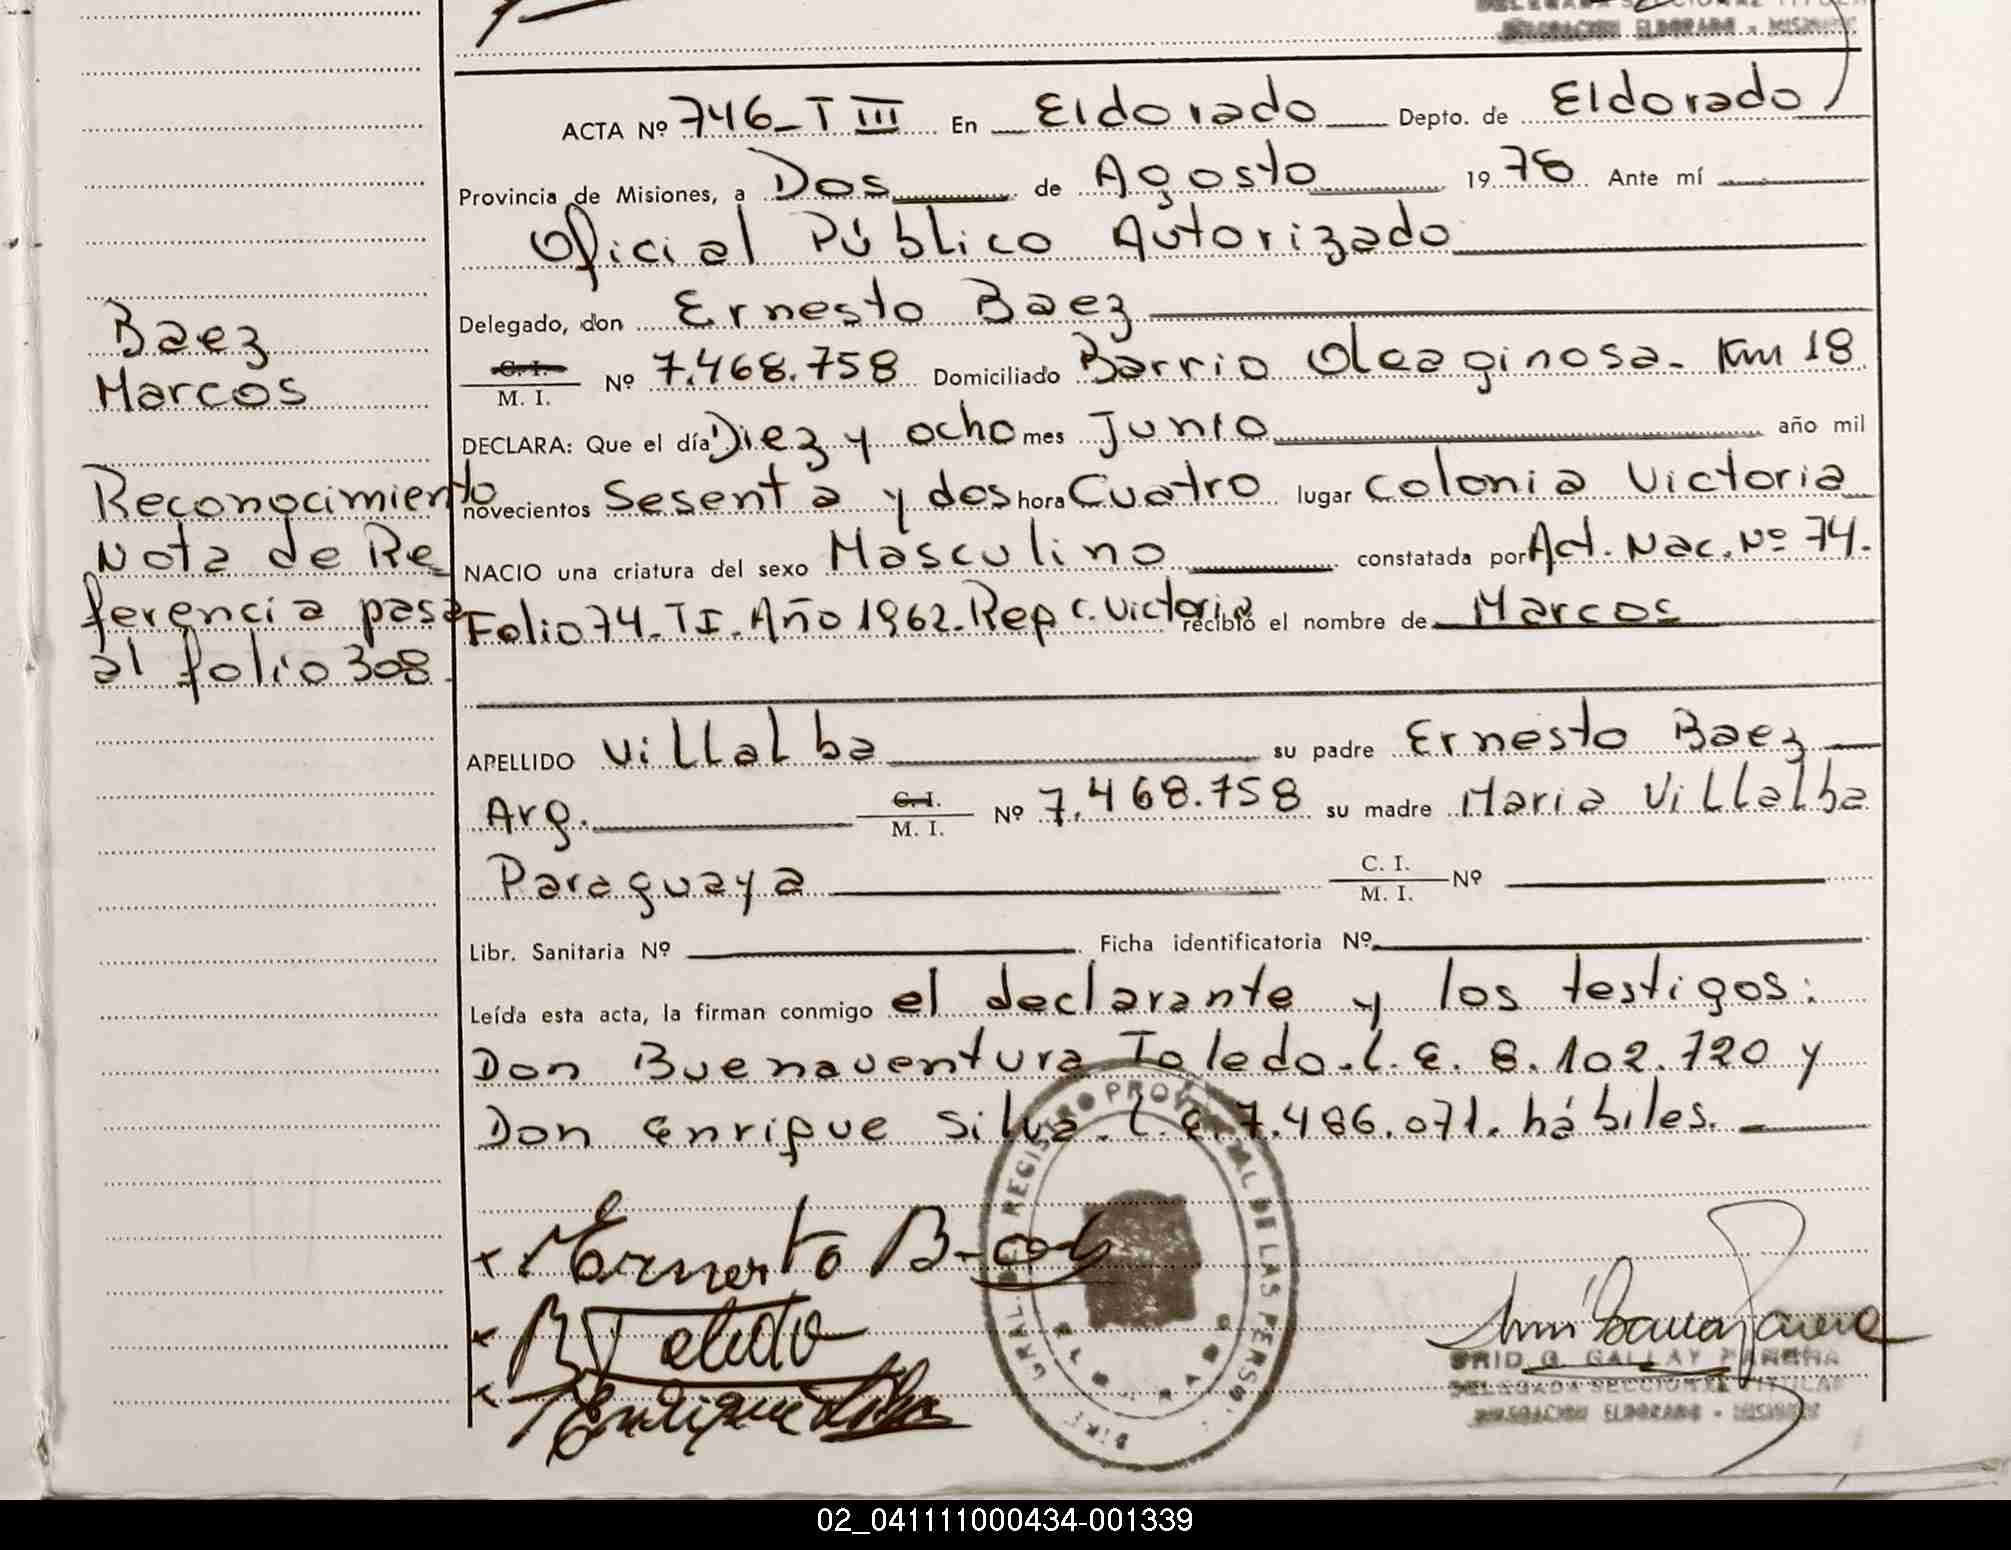 DELEGACION ELDORADO - MISIONES
ACTA Nº 746_T III En Eldorado Depto. de Eldorado
Provincia de Misiones, a Dos de Agosto 1978 Ante mí
Oficial Público Autorizado
Delegado, don Ernesto Baez
C. I.
M. I. Nº 7.468.758 Domiciliado Barrio Oleaginosa. Km 18
DECLARA: Que el día Diez y ocho mes Junio año mil
novecientos Sesenta y dos hora Cuatro lugar Colonia Victoria
NACIO una criatura del sexo Masculino constatada por Act. Nac. Nº 74.
Folio 74. T I. Año 1962. Rep C. Victoria recibió el nombre de Marcos
APELLIDO Villalba su padre Ernesto Baez
Arg. C. I.
M. I. Nº 7.468.758 su madre Maria Villalba
Paraguaya C. I.
M. I. Nº
Libr. Sanitaria Nº Ficha identificatoria Nº
Leída esta acta, la firman conmigo el declarante y los testigos:
Don Buenaventura Toledo. L. E. 8.102.720 y
Don Enrique Silva. L. E. 7.486.071. hábiles.
Baez
Marcos
Reconocimiento
Nota de Re_
ferencia pasa
al folio 308.
Ernesto Baez
B Toledo
Enrique Silva
REGISTRO PROVINCIAL DE LAS PERSONAS
GRID G. GALLAY
DELEGADA SECCIONAL TITULAR
DELEGACION ELDORADO - MISIONES
02_041111000434-001339